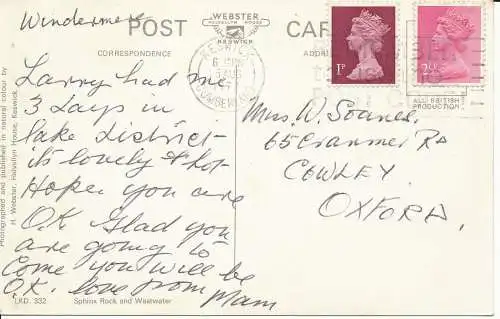 Windermere
POST
WEBSTER
HELVELLYN HOUSE
KESWICK
CARD
CORRESPONDENCE
ADDRESS
KESWICK
AUG
CUMBERLAND
1P
2½P
ALL BRITISH
PRODUCTION
Larry had me
3 days in
lake District
its lovely & hot
Hope you are
O.K. Glad you
are going to
Come you will be
O.K. love from Mam
Mrs W. Soanes
65 Cranmer Rd
COWLEY
OXFORD.
Photographed and published in natural colour by
H. Webster, Helvellyn House, Keswick.
LKD. 332
Sphinx Rock and Wastwater